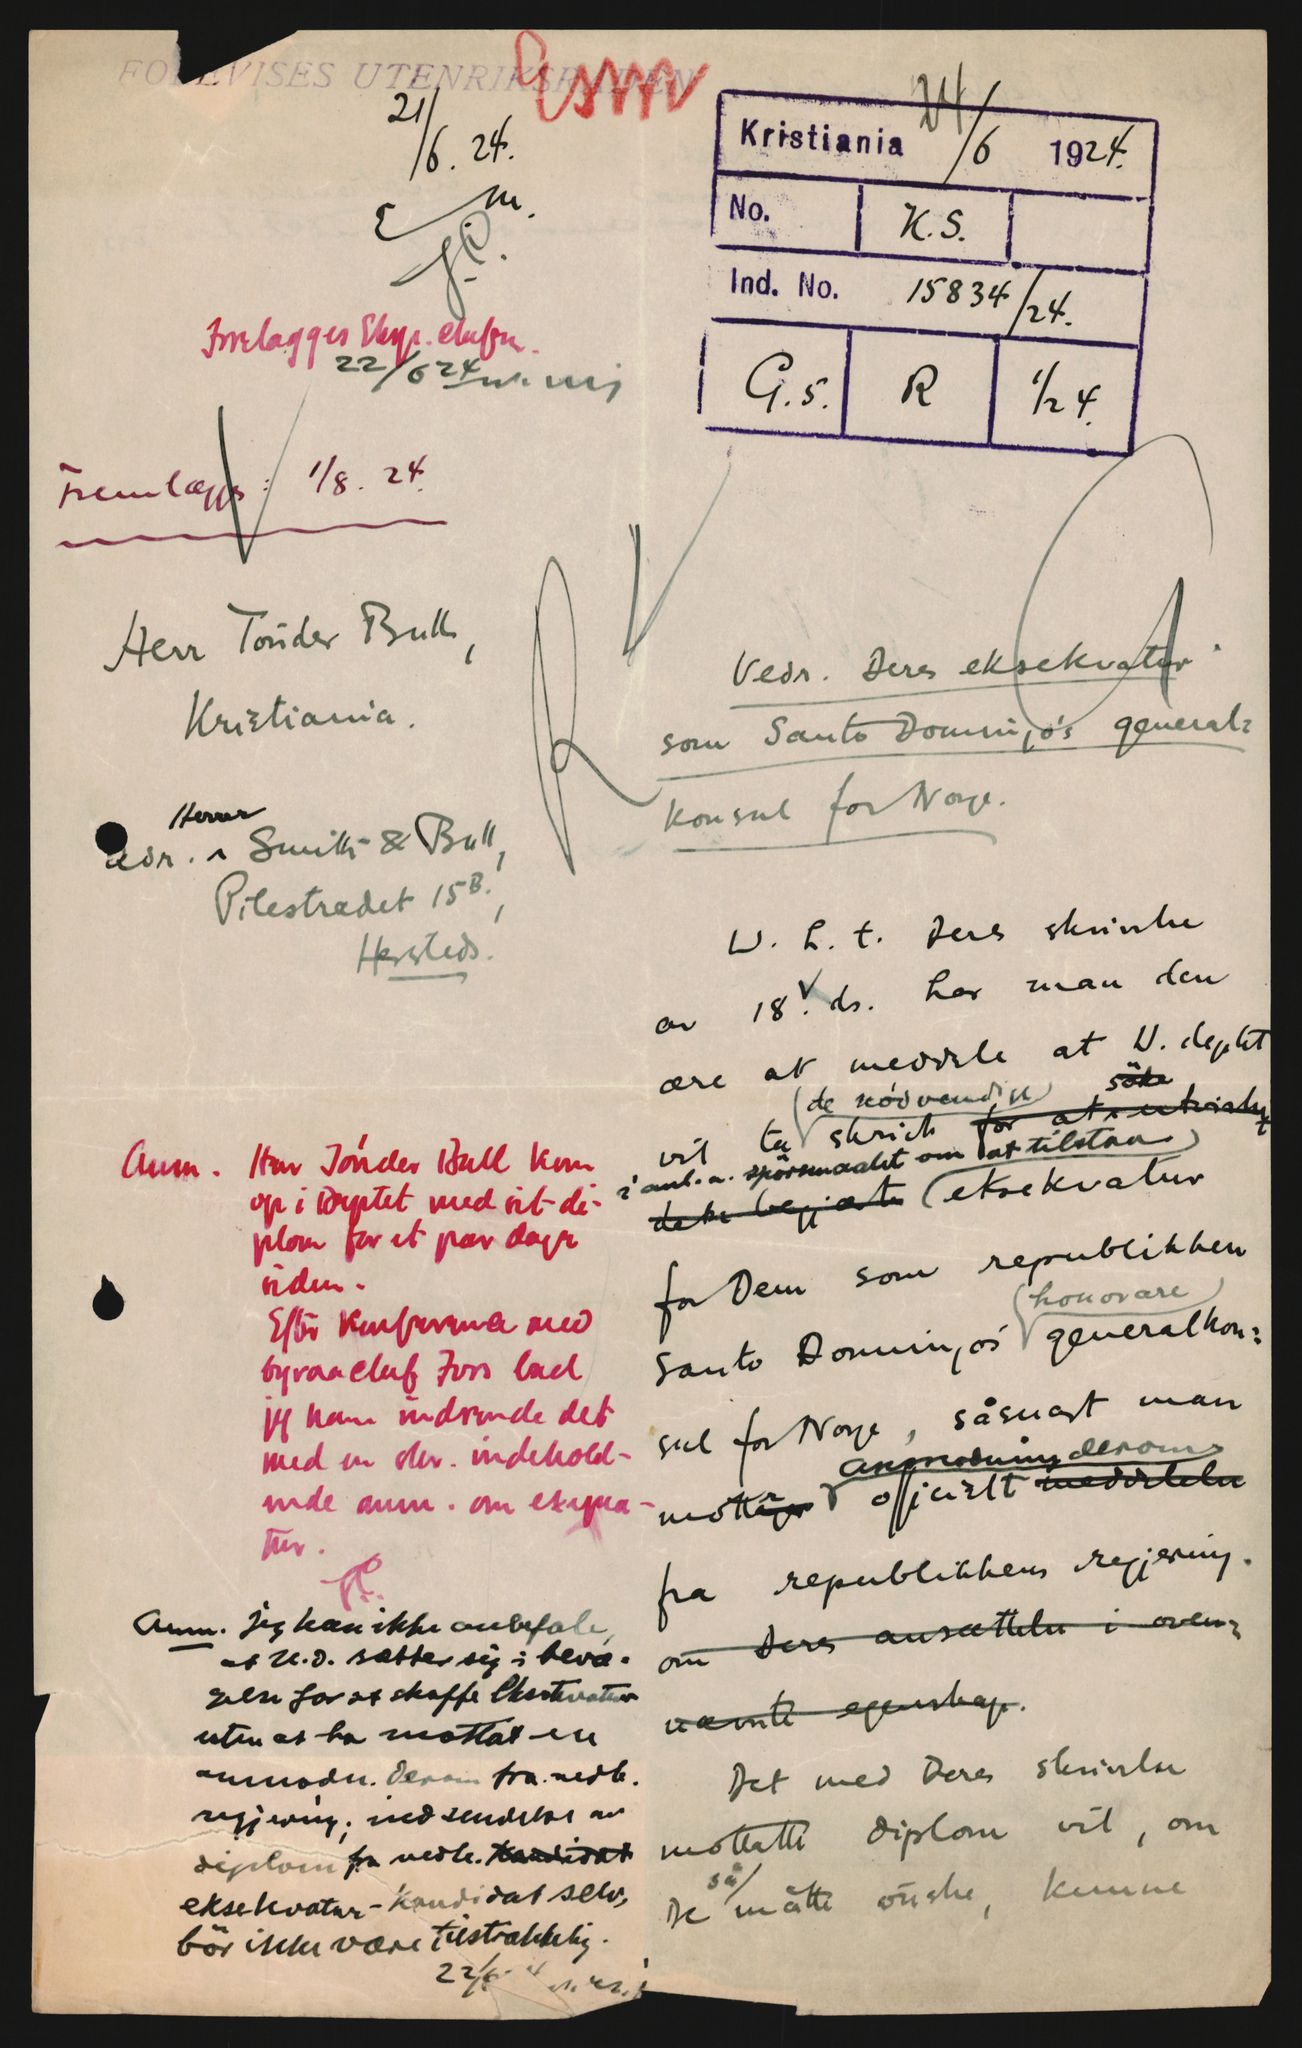 FOREVISES UTENRIKSRAADEN
21/6. 24.
E m.
Kristiania 24/6 1924.
No. K.S.
Ind. No. 15834/24.
G.S. R 1/24.
Forelægges Eksp. chefen.
22/6 24
Fremlægges: 1/8. 24.
Herr Tönder Bull,
Kristiania.
adr. Herrer Smith & Bull,
Pilestrædet 15B.,
Hersteds.
Vedr. Deres eksekvatur
som Santo Domingo's general=
konsul for Norge.
U. h. t. Deres skrivelse
av 18. ds. har man den
ære at meddele at U. deptet
vil ta de nödvendige skridt for at utvirke söke
i anl. a. spörsmaalet om at tilstaa
dette begjærte eksekvatur
for Dem som republikken
Santo Domingo's honorære generalkon=
sul for Norge, såsnart man
mottar anmodning derom officielt meddelelse
fra republikkens regjering.
om Deres ansættelse i oven=
nævnte egenskap.
Det med Deres skrivelse
mottatte diplom vil, om
De så måtte önske, kunne
Anm. Herr Tönder Bull kom
op i Deptet med sit di-
plom for et par dage
siden.
Efter konferanse med
byraachef Foss bad
jeg ham indsende det
med en skr. indehold-
ende anm. om exequa-
tur.
Anm. Jeg kan ikke anbefale,
at U.D. sætter sig i bevæ-
gelse for at skaffe Eksekvatur
uten at ha mottat en
anmodn. derom fra vedk.
regjering; indsendelse av
diplom fra vedk. kandidat
eksekvatur-kandidat selv,
bör ikke være tilstrækkelig.
22/6